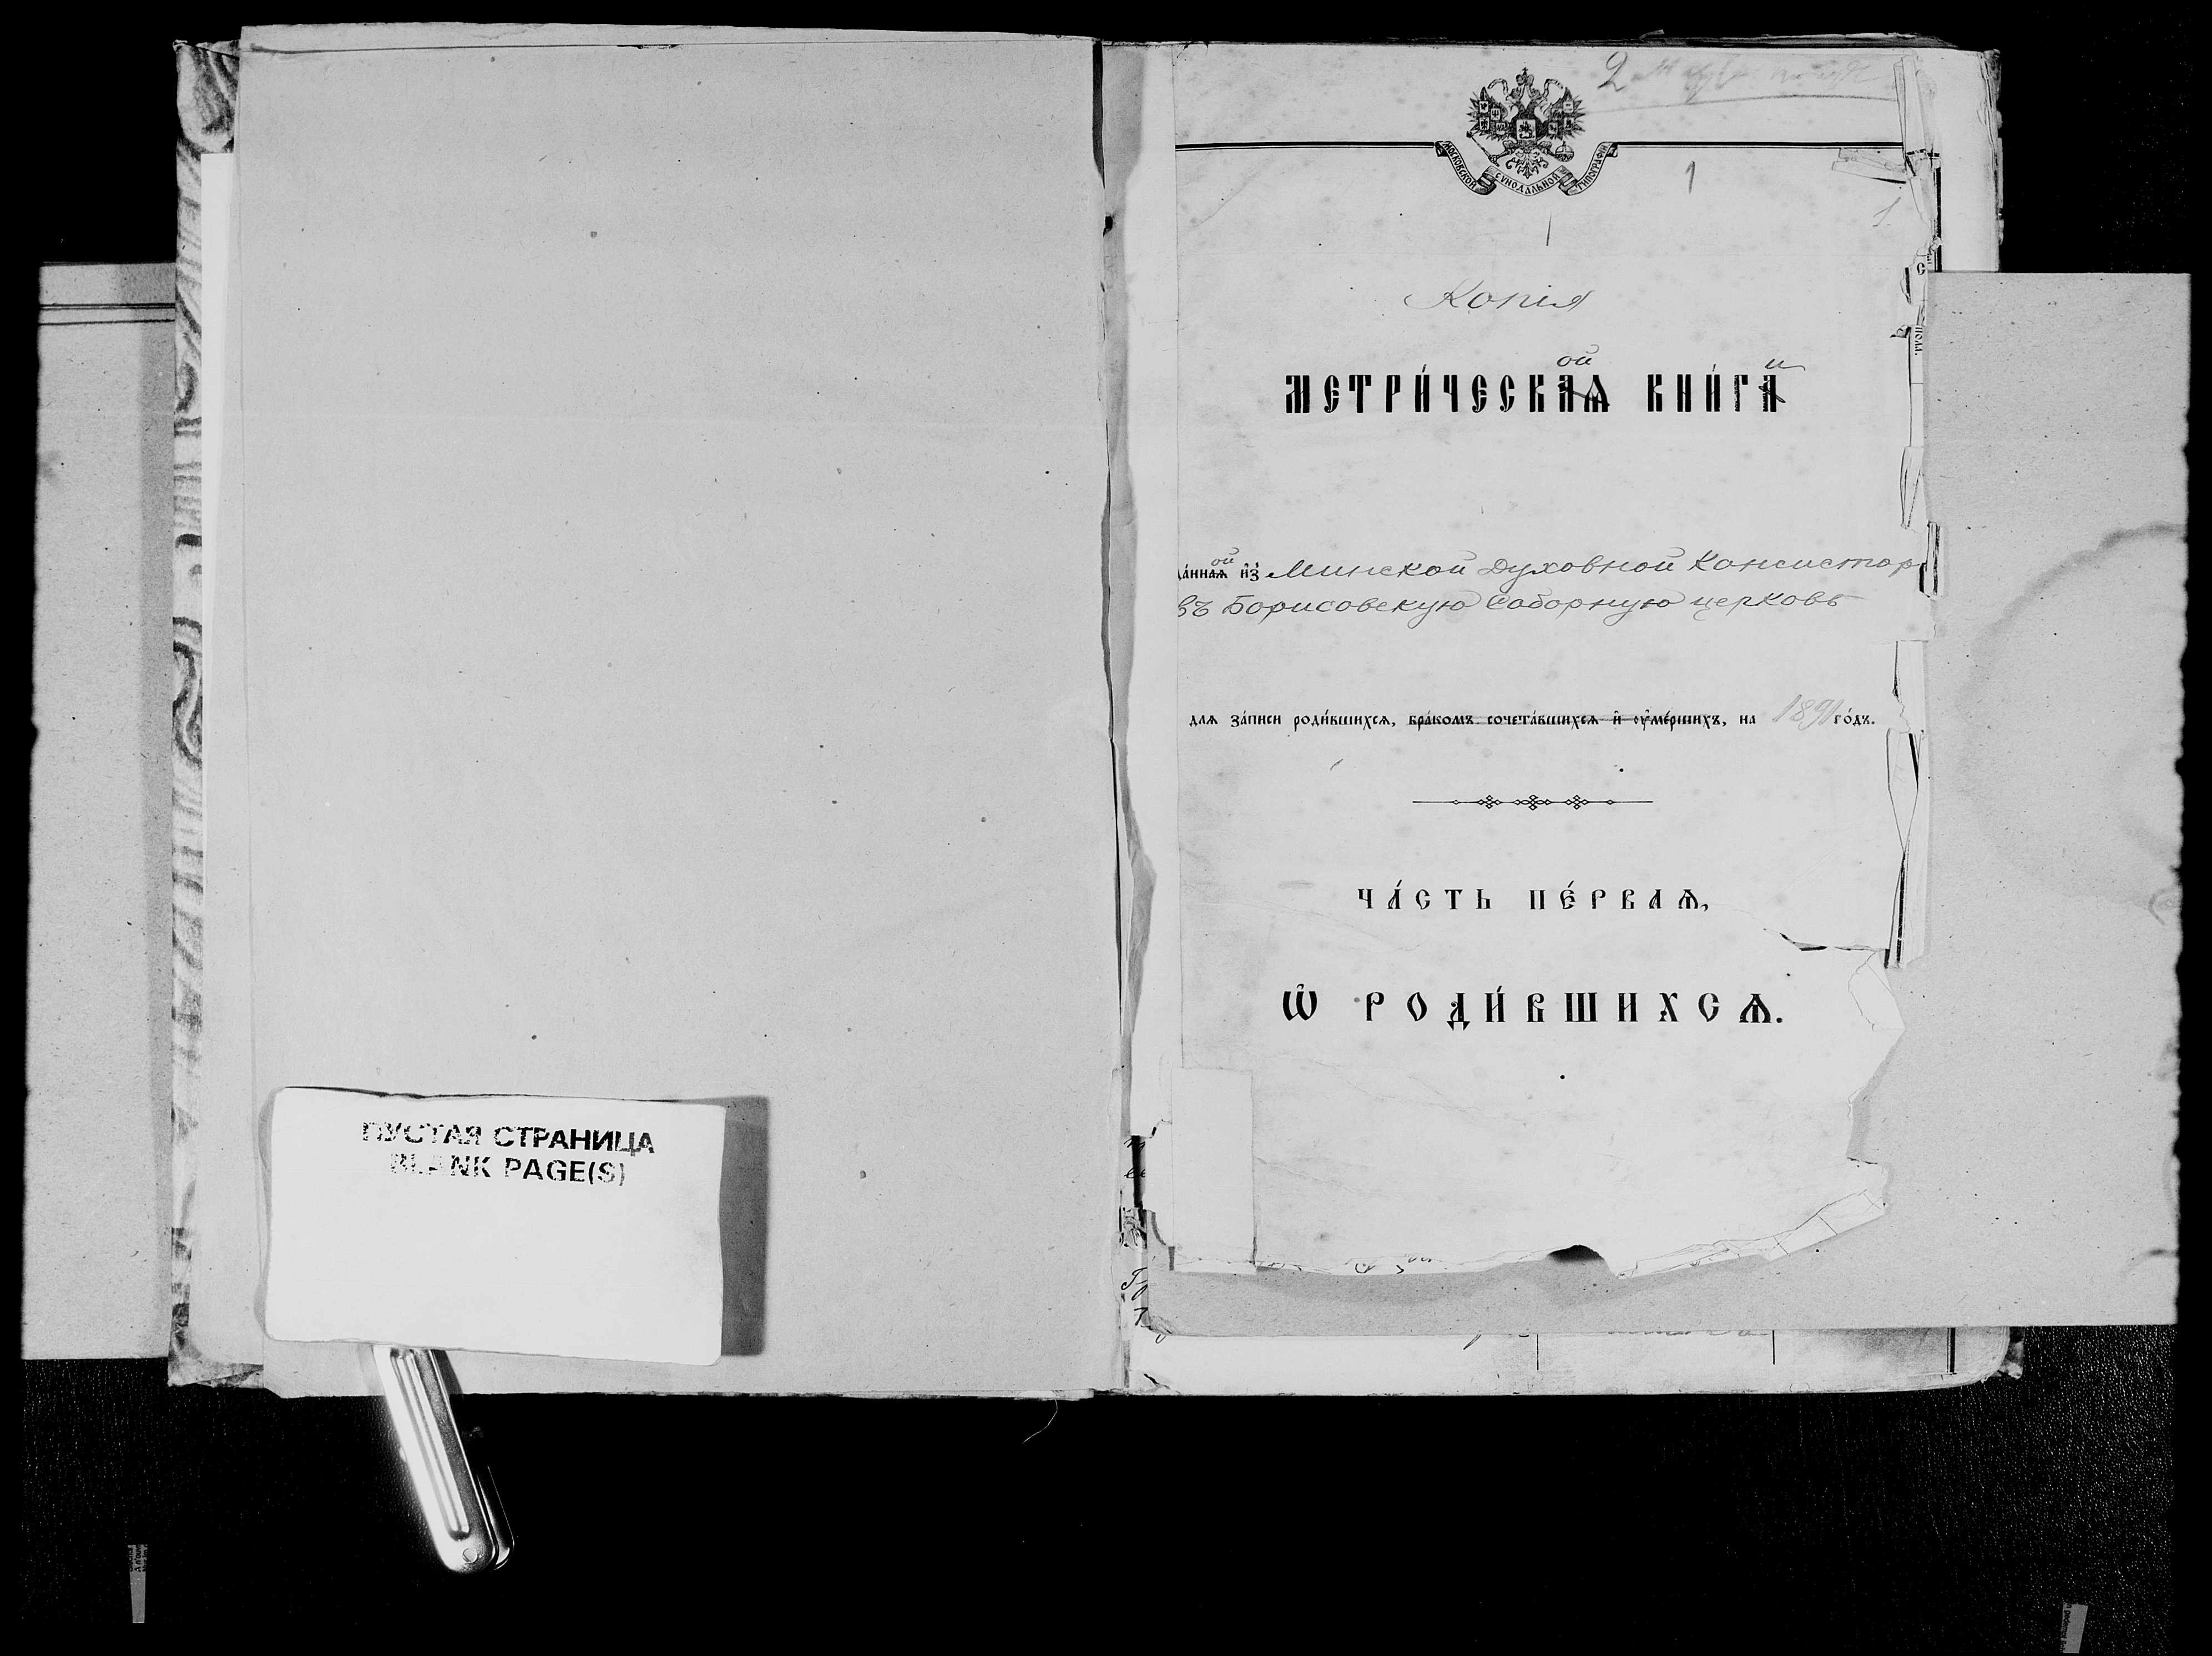 ПУСТАЯ СТРАНИЦА
BLANK PAGE(S)
2
МОСКОВСКОЙ СѴНОДАЛЬНОЙ ТИПОГРАФІИ
1
1.
Копія
МЕТРИ́ЧЕСКАѦ ой КНИ́ГА и
да́ннаѧ ой и҆з̾ Минской Духовной Консистор
въ Борисовскую Соборную церковь
длѧ за́писи роди́вшихсѧ, бра́комъ сочета́вшихсѧ и҆ ᲂу҆ме́ршихъ, на 1891 го́дъ.
ЧА́СТЬ ПЕ́РВАѦ,
Ѽ РОДИ́ВШИХСѦ.